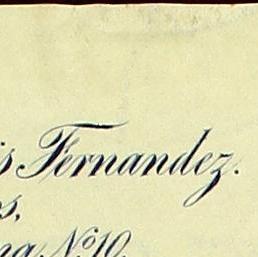 s Fernandez.
s,
ng, Nº 10.